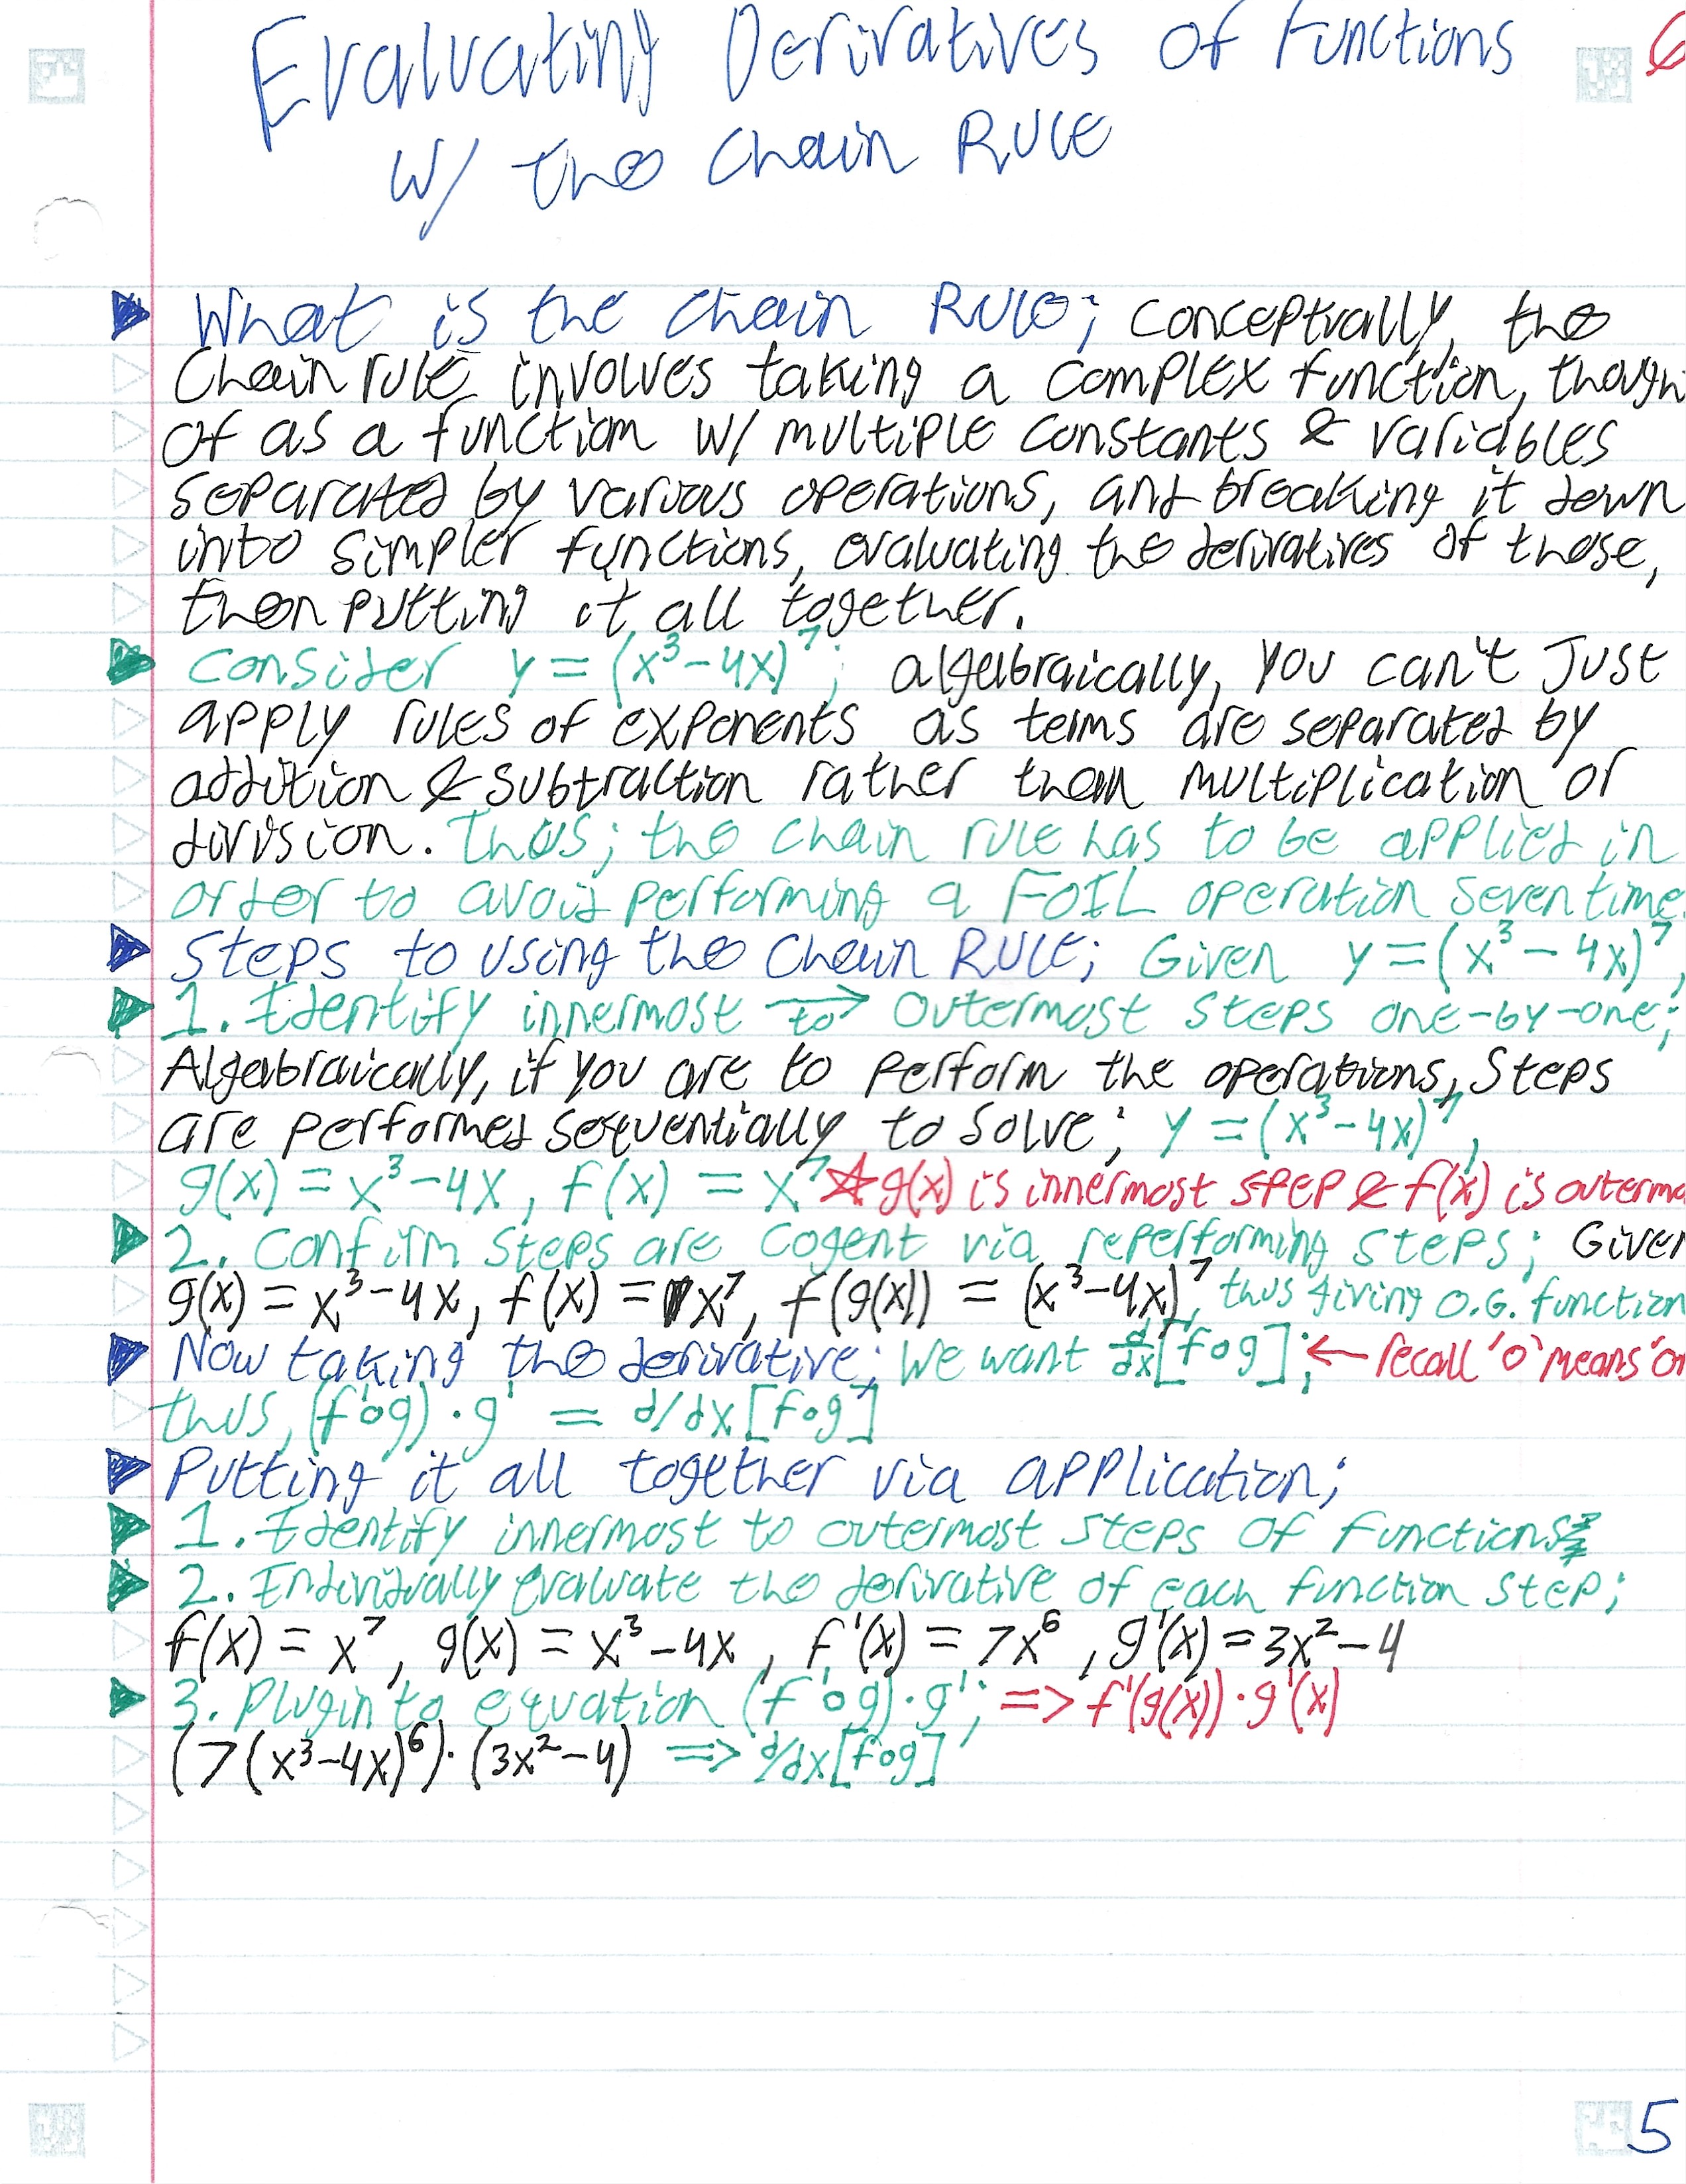 Evaluating Derivatives of Functions
6
w/ the Chain Rule
What is the Chain Rule; conceptually, the
Chain rule involves taking a complex function, though
of as a function w/ multiple constants & variables
separated by various operations, and breaking it down
into simpler functions, evaluating the derivatives of those,
then putting it all together.
Consider y = (x³-4x)⁷; algebraically, you can't just
apply rules of exponents as terms are separated by
addition & subtraction rather than multiplication or
division. Thus; the chain rule has to be applied in
order to avoid performing a FOIL operation seven time
Steps to using the Chain Rule; Given y = (x³-4x)⁷,
1. Identify innermost to → outermost steps one-by-one;
Algebraically, if you are to perform the operations, steps
are performed sequentially to solve; y = (x³-4x)⁷,
g(x) = x³-4x, f(x) = x⁷ ☆g(x) is innermost step & f(x) is outermo
2. Confirm steps are cogent via reperforming steps; Given
g(x) = x³-4x, f(x) = x⁷, f(g(x)) = (x³-4x)⁷, thus giving O.G. function
Now taking the derivative; we want d/dx[f∘g]; ← recall 'o' means 'of
thus, (f'∘g)·g' = d/dx[f∘g]
Putting it all together via application;
1. Identify innermost to outermost steps of functions;
2. Individually evaluate the derivative of each function step;
f(x) = x⁷, g(x) = x³-4x, f'(x) = 7x⁶, g'(x) = 3x²-4
3. Plug into equation (f'∘g)·g'; => f'(g(x))·g'(x)
(7(x³-4x)⁶)·(3x²-4) => d/dx[f∘g]
5